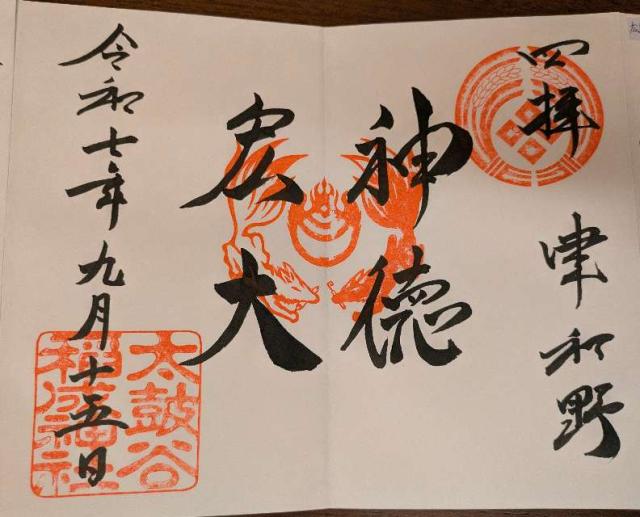 四拝
津和野
神徳
宏大
令和七年九月十五日
太鼓谷
稲成神社